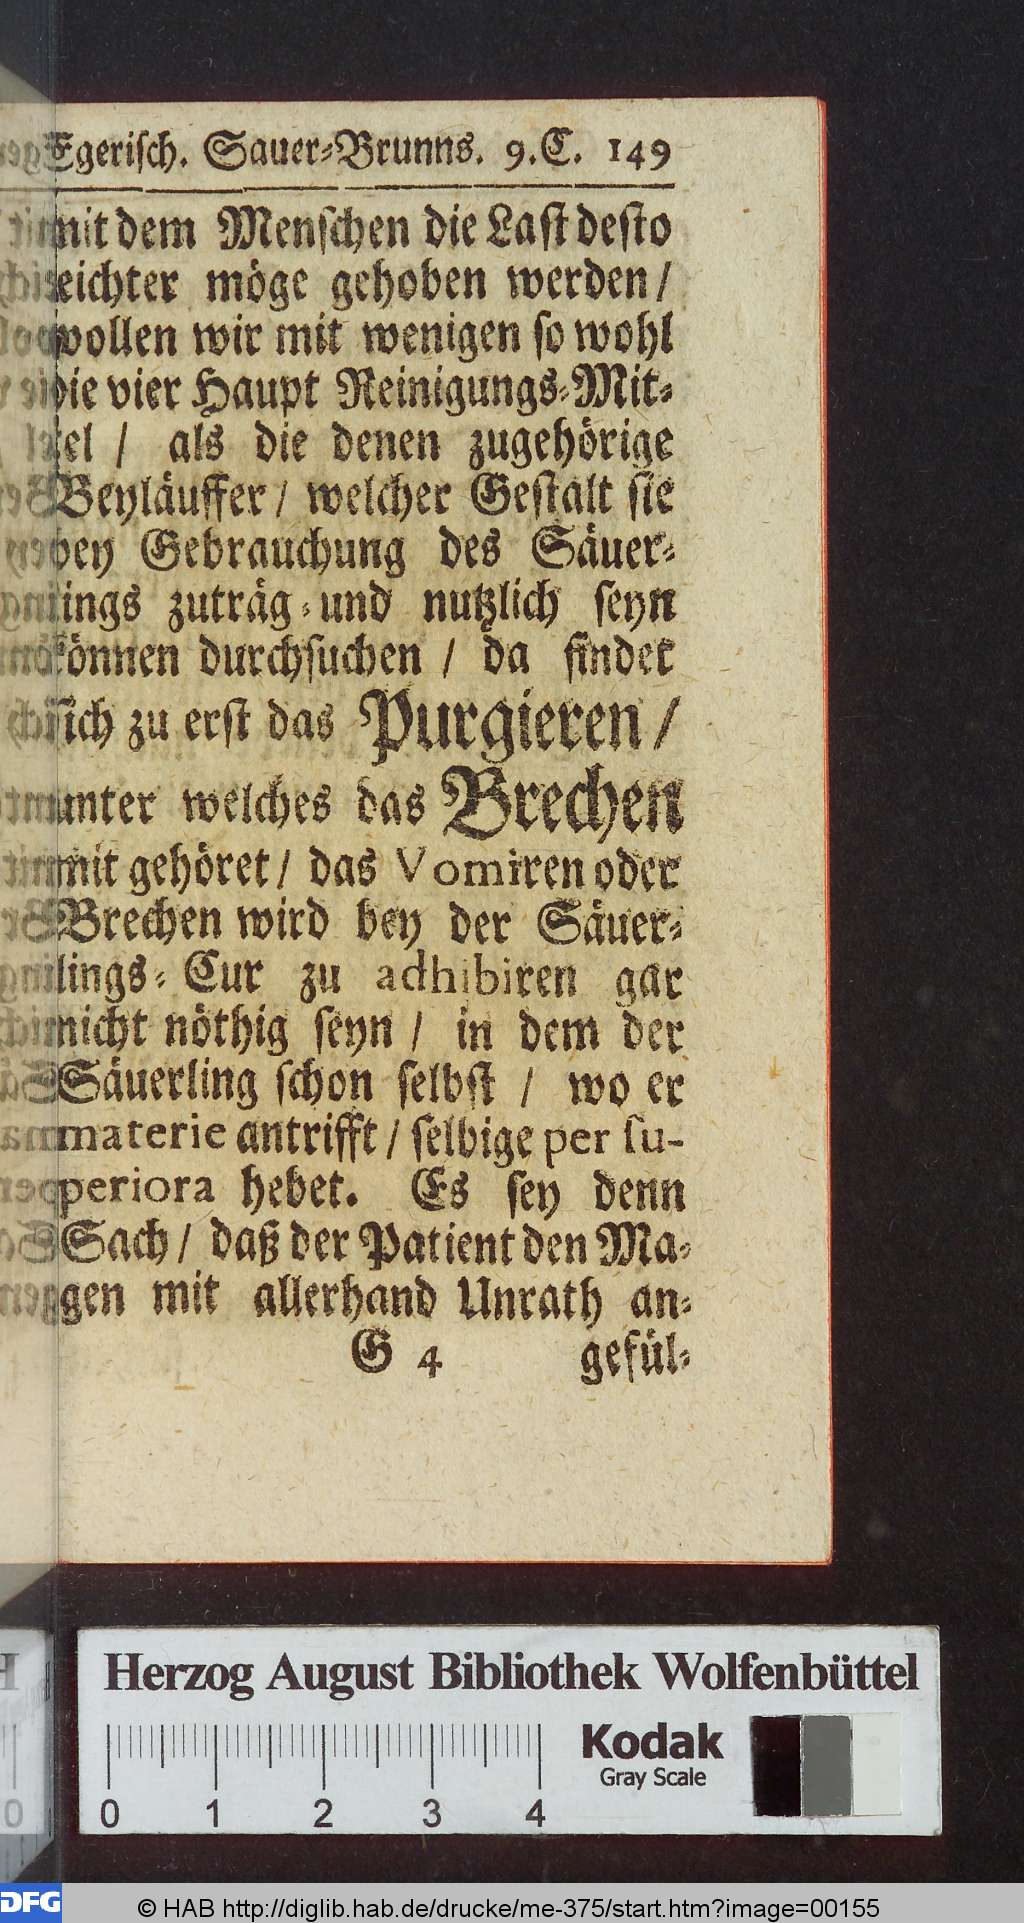 Egerisch. Sauer-Brunns. 9.C. 149
mit dem Menschen die Last desto
leichter möge gehoben werden /
wollen wir mit wenigen so wohl
die vier Haupt Reinigungs-Mit-
tel / als die denen zugehörige
Beyläuffer / welcher Gestalt sie
bey Gebrauchung des Säuer-
lings zuträg-und nutzlich seyn
können durchsuchen / da findet
sich zu erst das Purgieren /
unter welches das Brechen
mit gehöret / das Vomiren oder
Brechen wird bey der Säuer-
lings-Cur zu adhibiren gar
nicht nöthig seyn / in dem der
Säuerling schon selbst / wo er
materie antrifft / selbige per su-
periora hebet. Es sey denn
Sach / daß der Patient den Ma-
gen mit allerhand Unrath an-
G 4 gefül-
Herzog August Bibliothek Wolfenbüttel
Kodak
Gray Scale
0 1 2 3 4
DFG © HAB http://diglib.hab.de/drucke/me-375/start.htm?image=00155